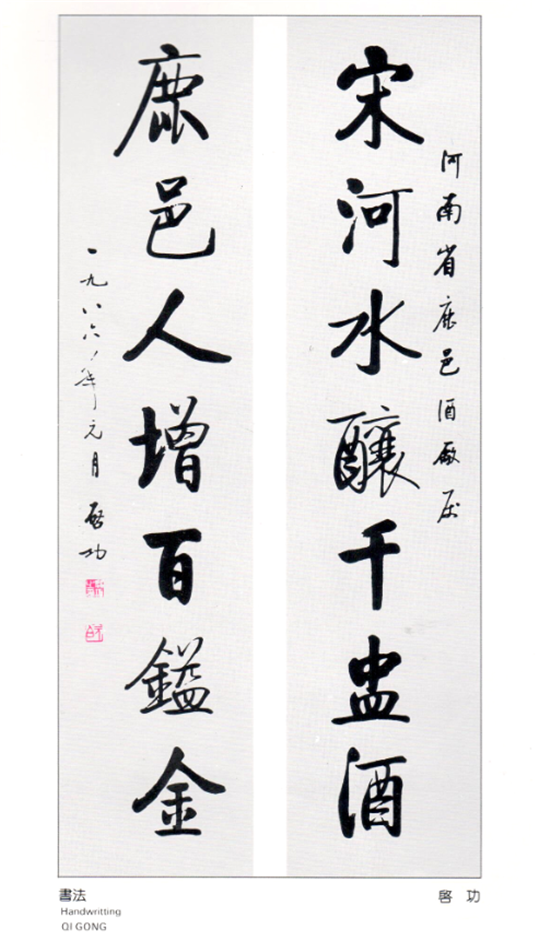 河南省鹿邑酒厰
宋河水釀千盅酒
鹿邑人增百鎰金
一九八六年元月 啓功
書法
Handwritting
QI GONG
啓 功